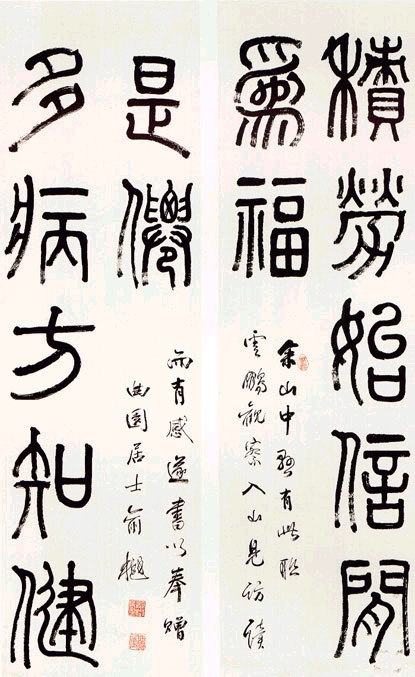 積勞始信閒
爲福
余山中懸有此聯
雲鵬觀察入山見訪讀
多病方知健
是僊
而有感遂書以奉贈
曲園居士俞樾